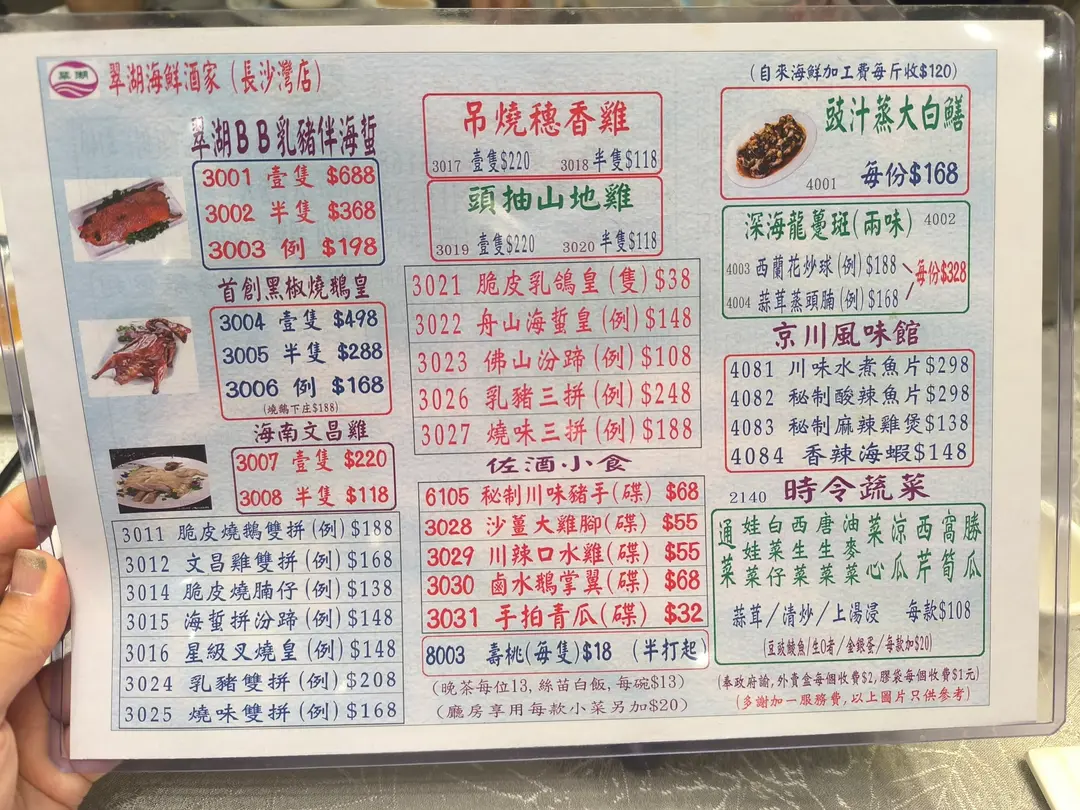 翠湖
翠湖海鮮酒家（長沙灣店）
翠湖BB乳豬伴海蜇
3001 壹隻 $688
3002 半隻 $368
3003 例 $198
首創黑椒燒鵝皇
3004 壹隻 $498
3005 半隻 $288
3006 例 $168
(燒鵝下庄$188)
海南文昌雞
3007 壹隻 $220
3008 半隻 $118
3011 脆皮燒鵝雙拼(例)$188
3012 文昌雞雙拼(例)$168
3014 脆皮燒腩仔(例)$138
3015 海蜇拼汾蹄(例)$148
3016 星級叉燒皇(例)$148
3024 乳豬雙拼(例)$208
3025 燒味雙拼(例)$168
吊燒穗香雞
3017 壹隻$220 3018 半隻$118
頭抽山地雞
3019 壹隻$220 3020 半隻$118
3021 脆皮乳鴿皇(隻)$38
3022 舟山海蜇皇(例)$148
3023 佛山汾蹄(例)$108
3026 乳豬三拼(例)$248
3027 燒味三拼(例)$188
佐酒小食
6105 秘制川味豬手(碟) $68
3028 沙薑大雞腳(碟) $55
3029 川辣口水雞(碟) $55
3030 鹵水鵝掌翼(碟) $68
3031 手拍青瓜(碟) $32
8003 壽桃(每隻)$18 (半打起)
(晚茶每位13, 絲苗白飯, 每碗$13)
(廳房享用每款小菜另加$20)
(自來海鮮加工費每斤收$120)
豉汁蒸大白鱔
4001 每份$168
深海龍躉斑(兩味) 4002
4003 西蘭花炒球(例)$188
4004 蒜茸蒸頭腩(例)$168
每份$328
京川風味館
4081 川味水煮魚片$298
4082 秘制酸辣魚片$298
4083 秘制麻辣雞煲$138
4084 香辣海蝦$148
2140 時令蔬菜
通菜
娃娃菜
白菜仔
西生菜
唐生菜
油麥菜
菜心
涼瓜
西芹
萵筍
勝瓜
蒜茸/清炒/上湯浸 每款$108
(豆豉鯪魚/生0者/金銀蛋/每款加$20)
(奉政府諭, 外賣盒每個收費$2, 膠袋每個收費$1元)
(多謝加一服務費, 以上圖片只供參考)